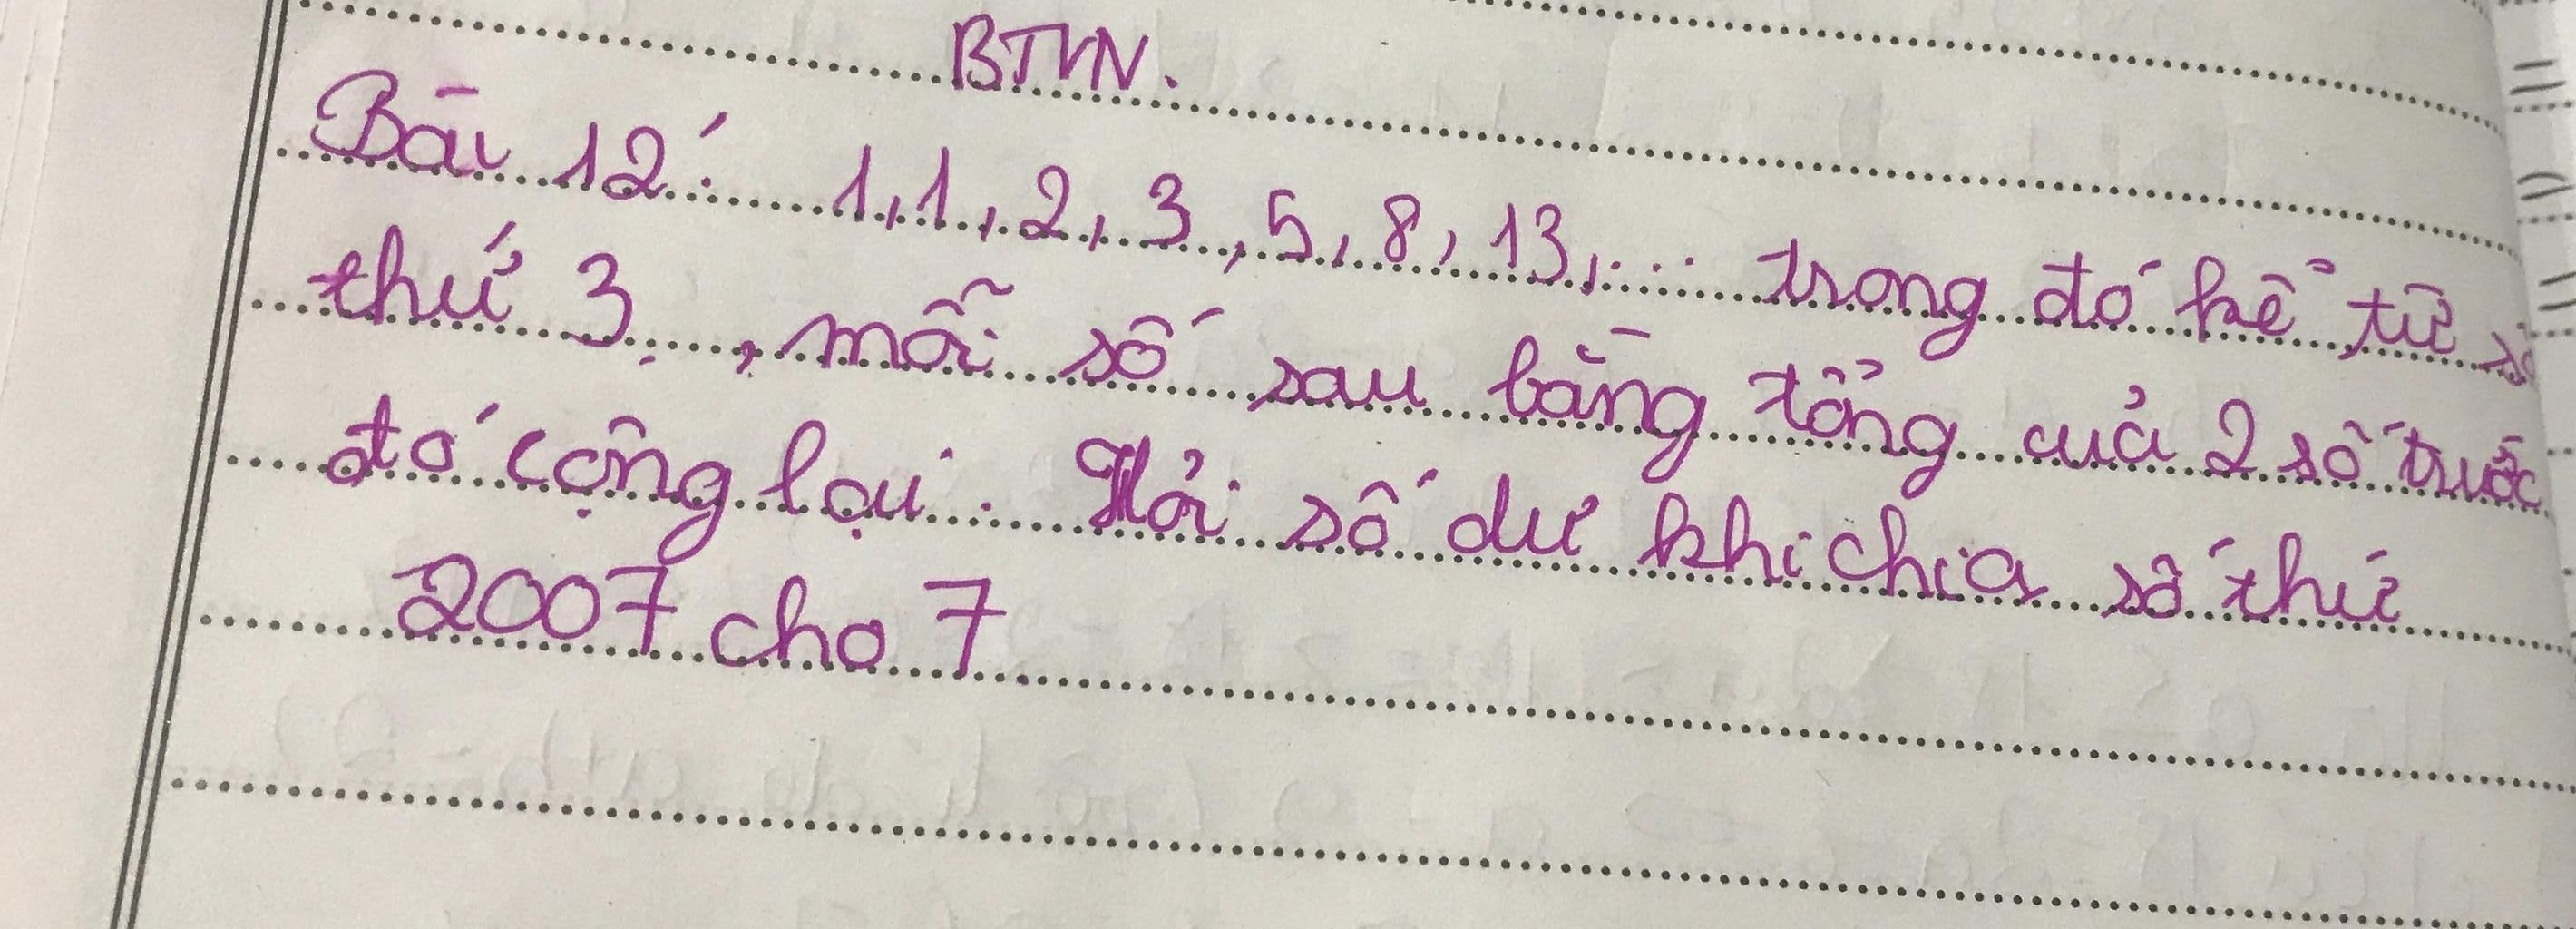 BTVN.
Bài 12: 1, 1, 2, 3, 5, 8, 13, ..... trong đó kể từ số
thứ 3, mỗi số sau bằng tổng của 2 số trước
đó cộng lại. Hỏi số dư khi chia số thứ
2007 cho 7.